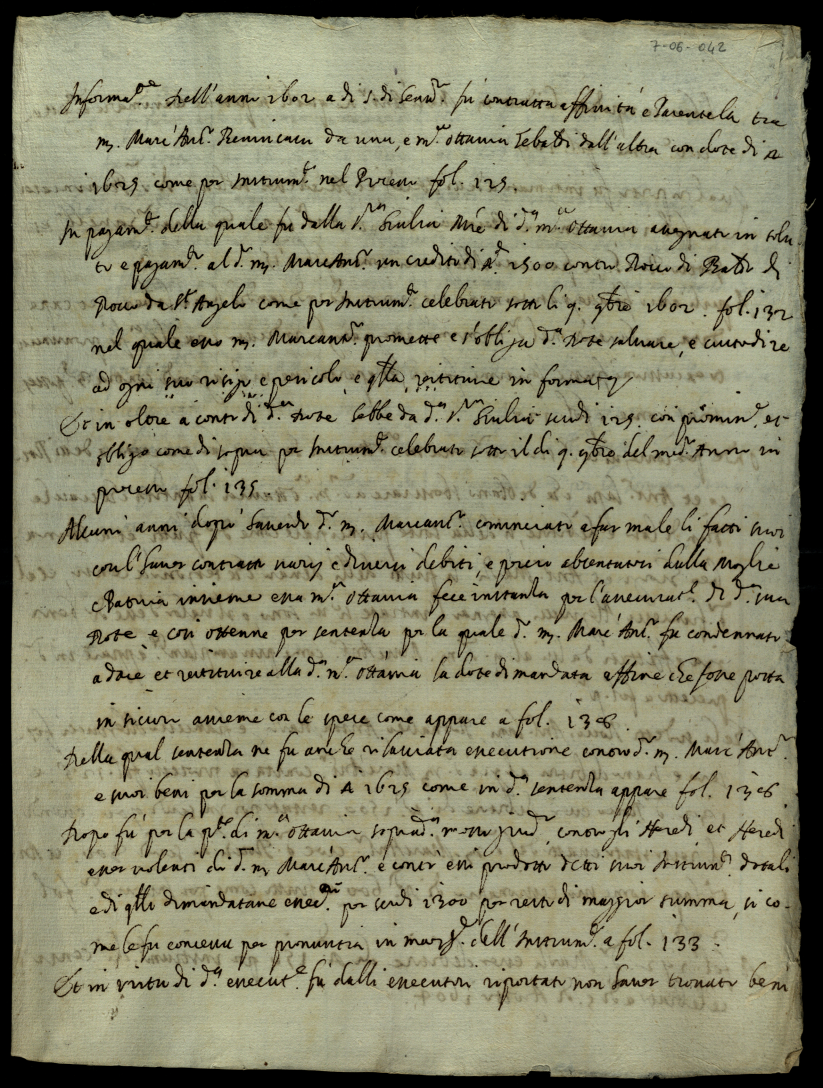 7-06-042
Informa.ne dell'anni 1602 a di 5. di Genn.o fu contratta affinità e Parentela tra
m. Marc'Ant.o da una, e m.a Ottavia dall'altra con dote di
1625 come per Instrum.to nel fol. 125.
In pagam.to della quale fu dalla S.ra Giulia M're di d.a m.a Ottavia assignati in solu-
to e pagam.to al d.o m. Marc'Ant.o un credito di 1500 contro Rocco di di
Rocco da S.t Angelo come per Instrum.to celebrato sotto li 9. 9bre 1602. fol. 132
nel quale esso m. Marcant.o promette e s'obliga d.a dote salvare, e custodire
ad ogni suo risigo e pericolo e q'lla restituire in forma
Et in oltre a conto di d.a dote hebbe da d.a S.ra Giulia scudi 125. con promiss.e et
obligo come di sopra per Instrum.to celebrato sotto il di 9. 9bre del med.o Anno in
processo fol. 135.
Alcuni anni dopo havendo d.o m. Marcant.o cominciato a far male li fatti suoi
con l'haver contratti varij e diversi debiti, e perciò absentatosi dalla Moglie
e Patria insieme essa m.a Ottavia fece instanza per l'assecurat.e di d.a sua
dote e così ottenne per sentenza per la quale d.o m. Marc'Ant.o fu condennato
a dare et restituire alla d.a m.a Ottavia la dote dimandata affine che fosse posta
in sicuro assieme con le spese come appare a fol. 138.
Della qual sentenza ne fu anche rilasciata essecutione contro d.o m. Marc'Ant.o
e suoi beni per la somma di 1625 come in d.a sentenza appare fol. 138.
Dopo fu per la p.te di m.a Ottavia soprad.a mosso giud.o contro gli Heredi et Heredi
esser volenti di d.o m. Marc'Ant.o e contr'essi prodotti detti suoi Instrum.ti dotali
e di q'lli dimandatane esec.ne per scudi 1300 per resto di maggior summa, si co-
me le fu concessa per pronuntia in marg.e dell'Instrum.to a fol. 133.
Et in virtù di d.a execut.e fu dalli executori riportato non haver trovato beni